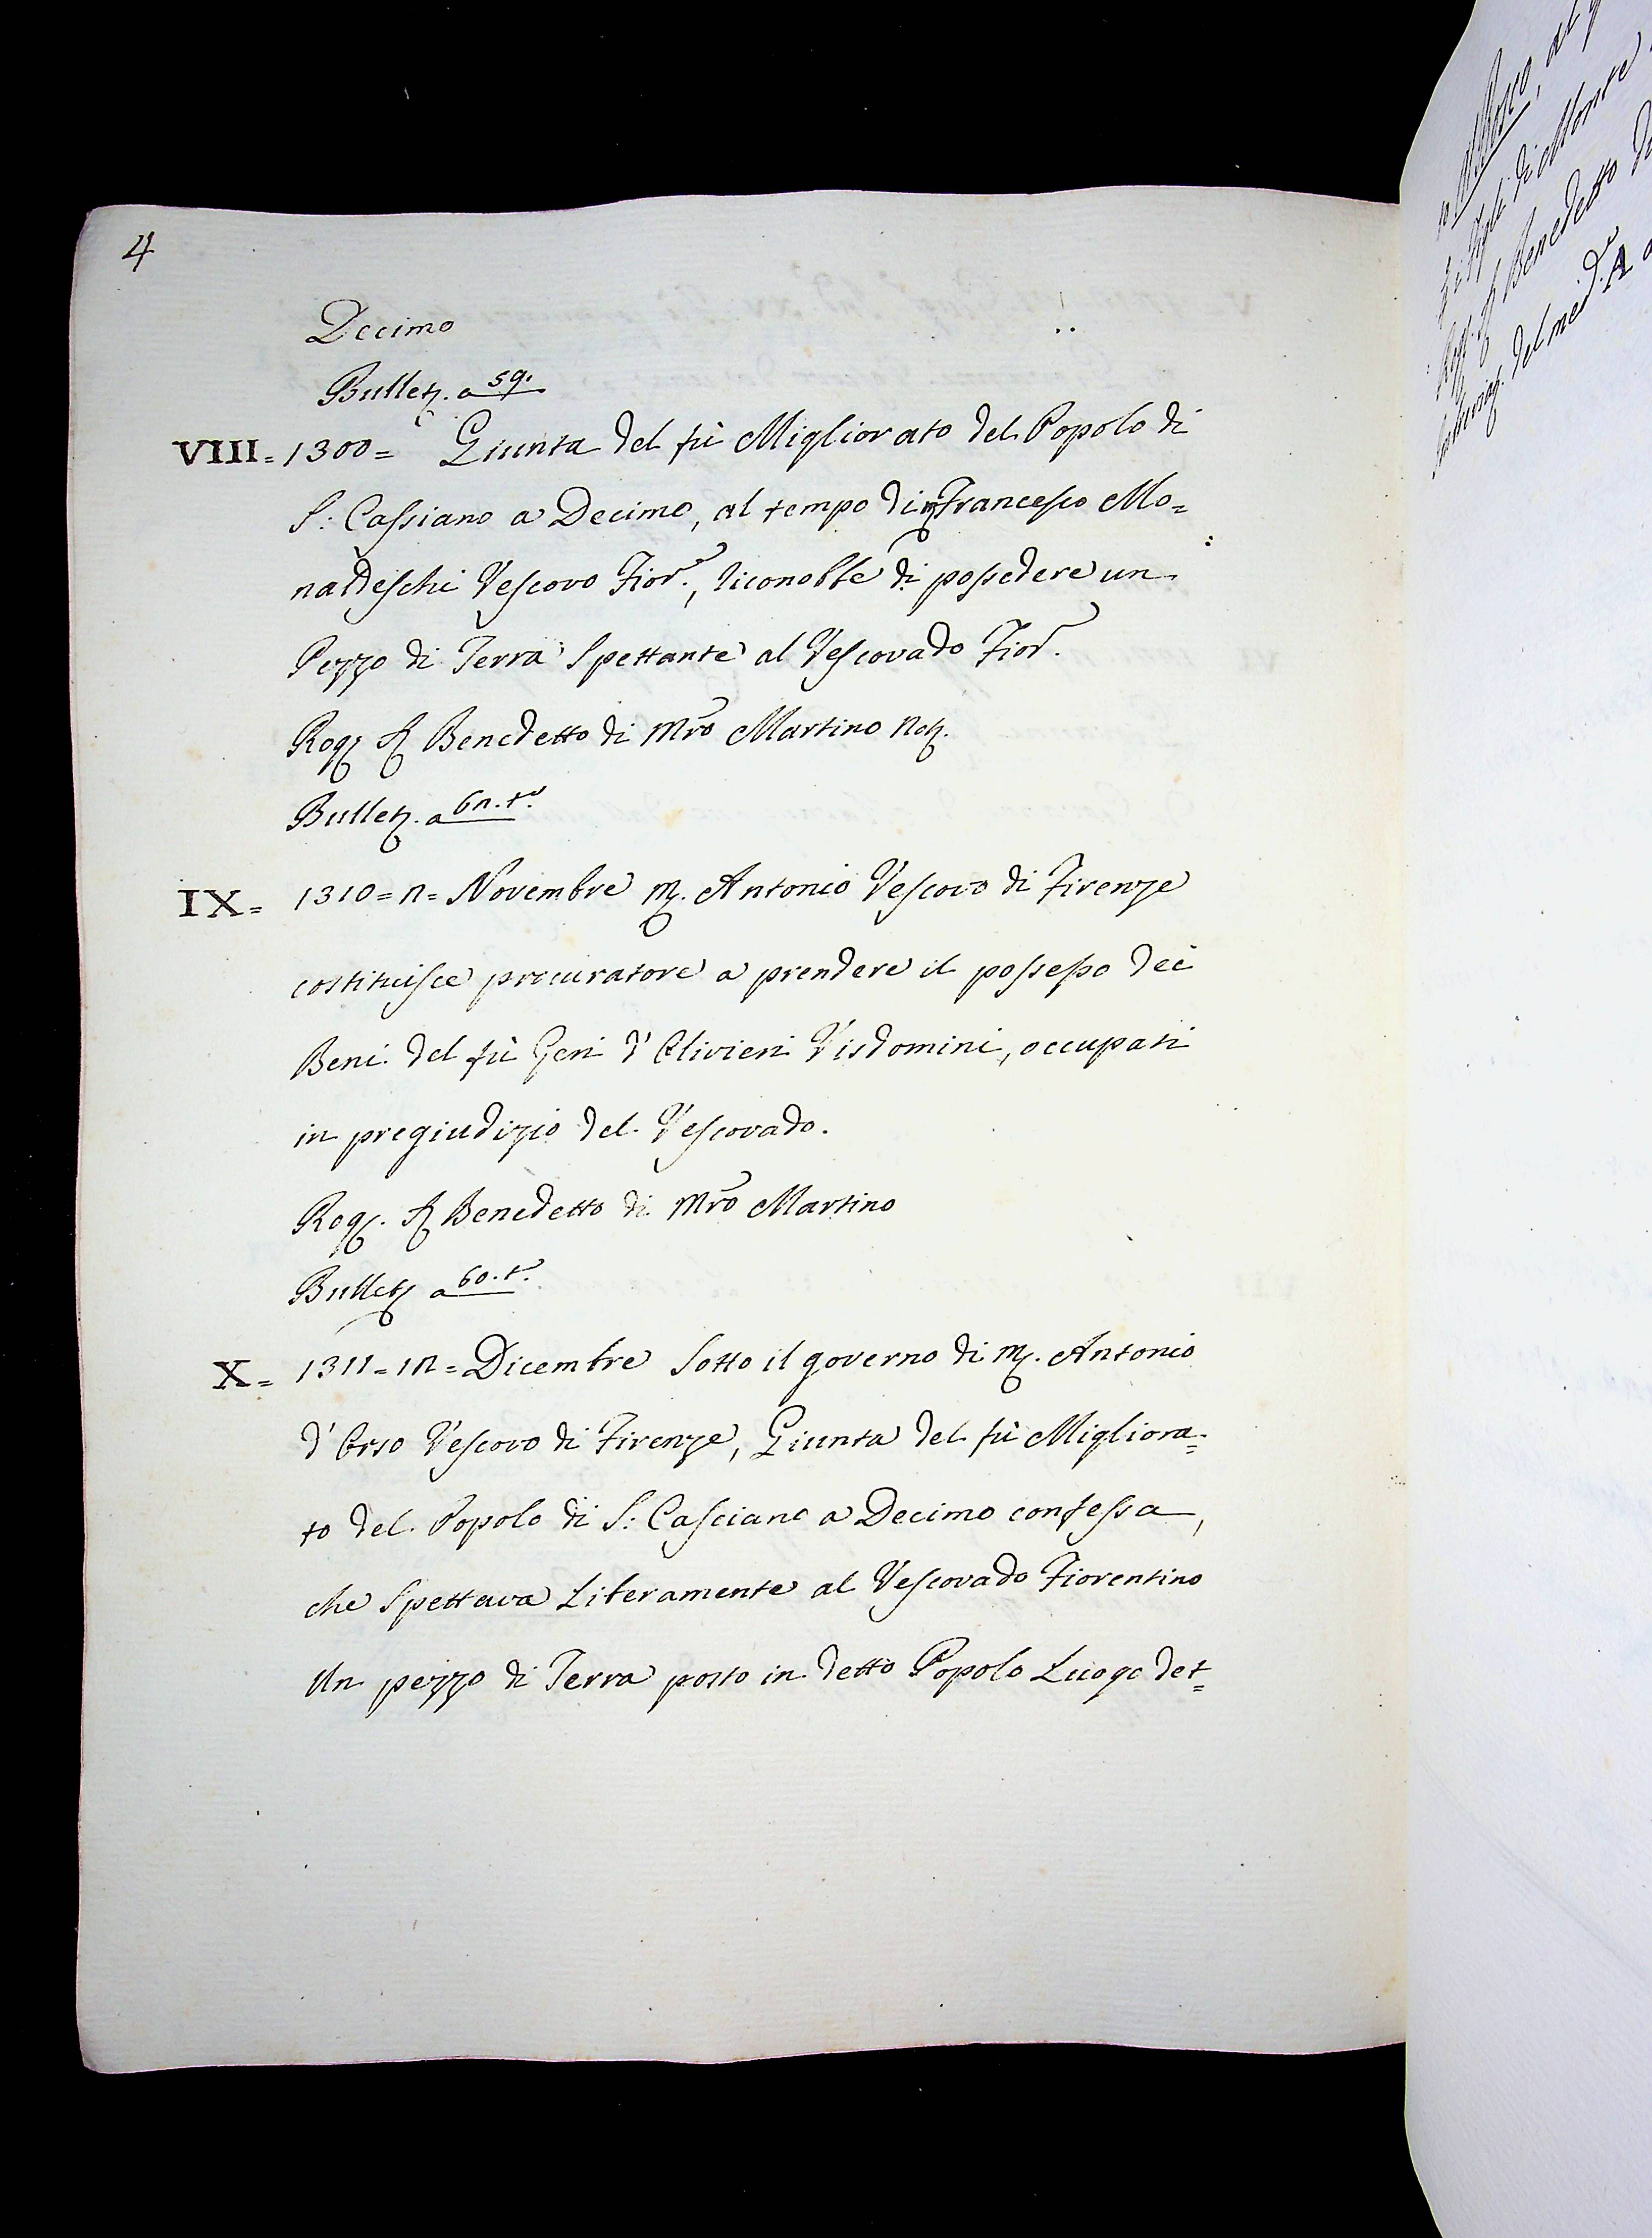 4
Decimo
Bullett. a 59.
VIII = 1300 = Giunta del fù Migliorato del Popolo di
S: Cassiano a Decimo, al tempo di M. Francesco Mo=
naldeschi Vescovo Fior., riconobbe di possedere un
Pezzo di Terra Spettante al Vescovado Fior.
Rog. S. Benedetto di Mro Martino Not.
Bullett. a 60. t.
IX = 1310 = n = Novembre M. Antonio Vescovo di Firenze
costituisce procuratore a prendere il possesso dei
Beni del fù Geri d'Olivieri Visdomini, occupati
in pregiudizio del Vescovado.
Rog. S. Benedetto di Mro Martino
Bullett. a 60. t.
X = 1311 = 1n = Dicembre Sotto il governo di M. Antonio
d'Orso Vescovo di Firenze, Giunta del fù Migliora=
to del Popolo di S: Casciano a Decimo confessa,
che Spettava Liberamente al Vescovado Fiorentino
Un pezzo di Terra posto in detto Popolo Luogo det=
Benedetto